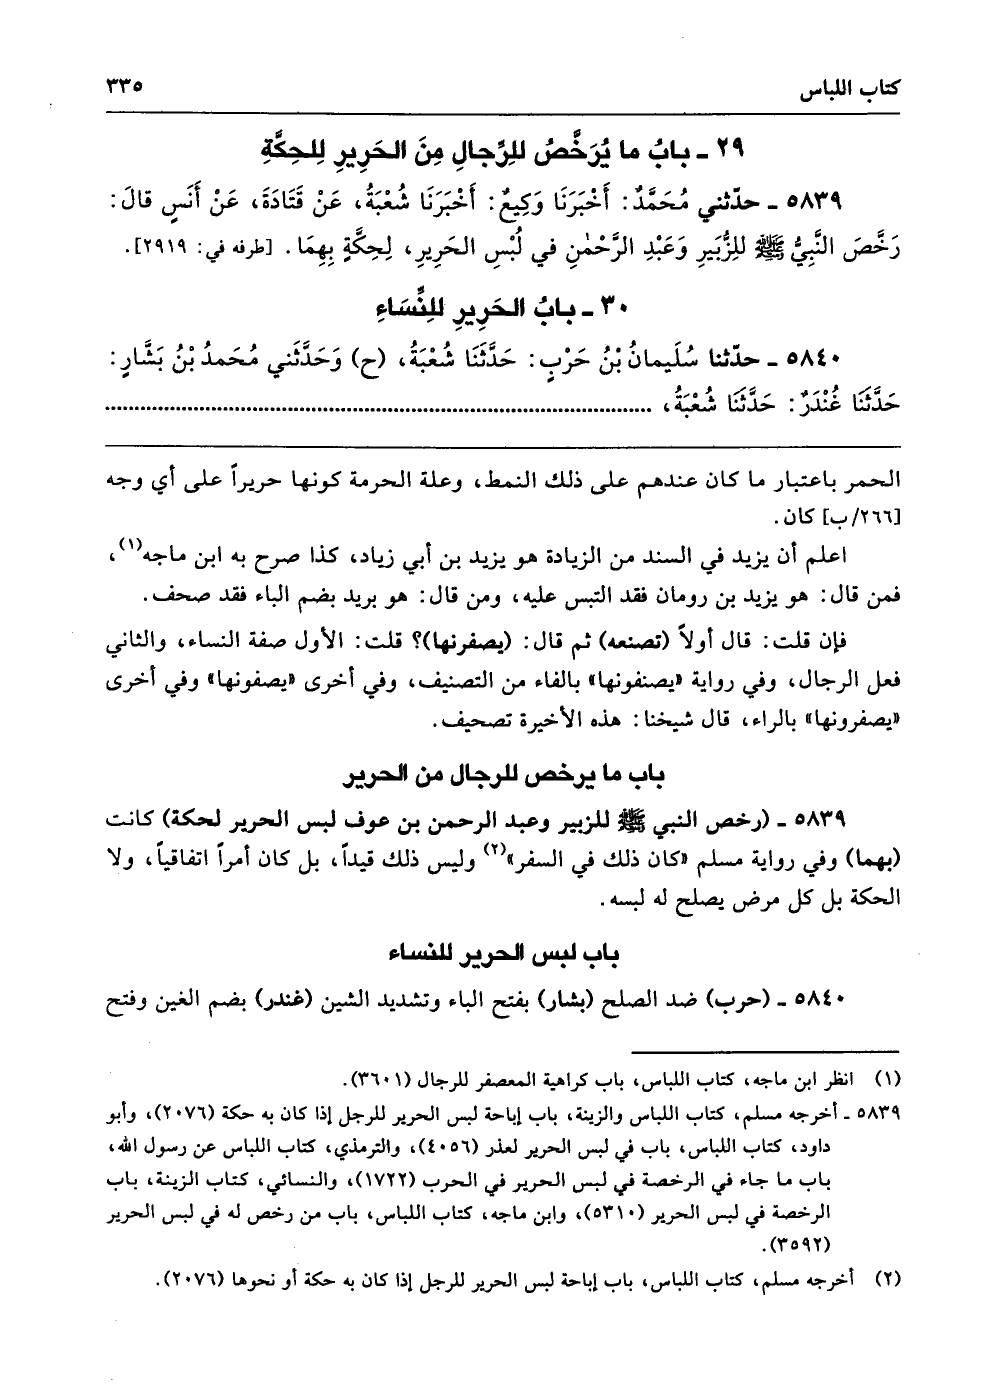 كتاب اللباس ٣٣٥
٢٩ ـ بابُ ما يُرَخَّصُ للرِّجالِ مِنَ الحَرِيرِ لِلحِكَّةِ
٥٨٣٩ ـ حدّثني مُحَمَّدٌ: أَخْبَرَنَا وَكِيعٌ: أَخْبَرَنَا شُعْبَةُ، عَنْ قَتَادَةَ، عَنْ أَنَسٍ قالَ:
رَخَّصَ النَّبِيُّ ﷺ للزُّبَيرِ وَعَبْدِ الرَّحْمٰنِ في لُبْسِ الحَرِيرِ، لِحِكَّةٍ بِهِمَا. [طرفه في: ٢٩١٩].
٣٠ ـ بابُ الحَرِيرِ للِنِّسَاءِ
٥٨٤٠ ـ حدّثنا سُلَيمانُ بْنُ حَرْبٍ: حَدَّثَنَا شُعْبَةُ، (ح) وَحَدَّثَني مُحَمدُ بْنُ بَشَّارٍ:
حَدَّثَنَا غُنْدَرٌ: حَدَّثَنَا شُعْبَةُ، ........................................................................
الحمر باعتبار ما كان عندهم على ذلك النمط، وعلة الحرمة كونها حريراً على أي وجه
[٢٦٦/ب] كان.
اعلم أن يزيد في السند من الزيادة هو يزيد بن أبي زياد، كذا صرح به ابن ماجه(١)،
فمن قال: هو يزيد بن رومان فقد التبس عليه، ومن قال: هو بريد بضم الباء فقد صحف.
فإن قلت: قال أولاً (تصنعه) ثم قال: (يصفرنها)؟ قلت: الأول صفة النساء، والثاني
فعل الرجال، وفي رواية «يصنفونها» بالفاء من التصنيف، وفي أخرى «يصفونها» وفي أخرى
«يصفرونها» بالراء، قال شيخنا: هذه الأخيرة تصحيف.
باب ما يرخص للرجال من الحرير
٥٨٣٩ ـ (رخص النبي ﷺ للزبير وعبد الرحمن بن عوف لبس الحرير لحكة) كانت
(بهما) وفي رواية مسلم «كان ذلك في السفر»(٢) وليس ذلك قيداً، بل كان أمراً اتفاقياً، ولا
الحكة بل كل مرض يصلح له لبسه.
باب لبس الحرير للنساء
٥٨٤٠ ـ (حرب) ضد الصلح (بشار) بفتح الباء وتشديد الشين (غندر) بضم الغين وفتح
(١) انظر ابن ماجه، كتاب اللباس، باب كراهية المعصفر للرجال (٣٦٠١).
٥٨٣٩ ـ أخرجه مسلم، كتاب اللباس والزينة، باب إباحة لبس الحرير للرجل إذا كان به حكة (٢٠٧٦)، وأبو
داود، كتاب اللباس، باب في لبس الحرير لعذر (٤٠٥٦)، والترمذي، كتاب اللباس عن رسول الله،
باب ما جاء في الرخصة في لبس الحرير في الحرب (١٧٢٢)، والنسائي، كتاب الزينة، باب
الرخصة في لبس الحرير (٥٣١٠)، وابن ماجه، كتاب اللباس، باب من رخص له في لبس الحرير
(٣٥٩٢).
(٢) أخرجه مسلم، كتاب اللباس، باب إباحة لبس الحرير للرجل إذا كان به حكة أو نحوها (٢٠٧٦).